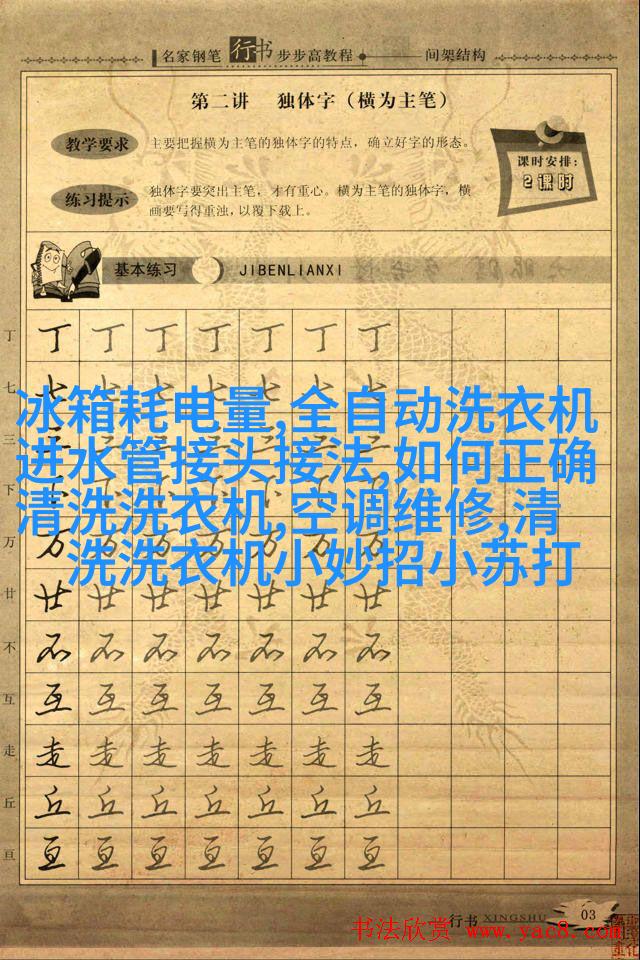 名家钢笔行书步步高教程 间架结构
第二讲 独体字（横为主笔）
教学要求 主要把握横为主笔的独体字的特点，确立好字的形态。
课时安排：
2课时
练习提示 独体字要突出主笔，才有重心。横为主笔的独体字，横
画要写得重浊，以覆下载上。
基本练习 JIBENLIANXI
丁 丁 丁 丁 丁 丁 丁 丁
七 七 七 七 七 七 七 七
冰箱耗电量,全自动洗衣机
三 三 三 三 三 三 三 三
进水管接头接法,如何正确
下 下
清洗洗衣机,空调维修,清
万 万 万 万 万 万 万 万
洗洗衣机小妙招小苏打
廿 廿 廿 廿 廿 廿 廿 廿
不 不 不 不 不 不 不 不
互 互 互 互 互 互 互 互
走 走 走 走 走 走 走 走
丘 丘 丘 丘 丘 丘 丘 丘
亘 亘 亘 亘 亘 亘 亘 亘
行书 XINGSHU 03
书法欣赏 www.yac8.com